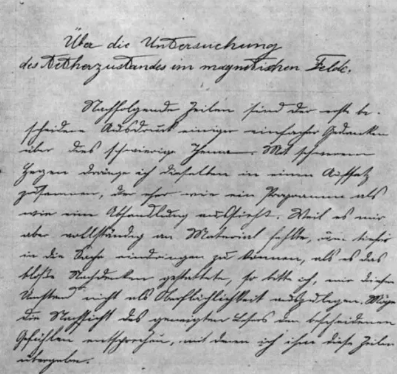 Über die Untersuchung
des Aetherzustandes im magnetischen Felde.
Nachfolgende Zeilen sind der erste be-
scheidene Ausdruck einiger einfacher Gedanken
über dies schwierige Thema. Mit schwerem
Herzen dränge ich dieselben in einen Aufsatz
zusammen, der eher wie ein Programm als
wie eine Abhandlung aussieht. Weil es mir
aber vollständig an Material fehlte, um tiefer
in die Sache eindringen zu können, als es das
bloße Nachdenken gestattet, so bitte ich, mir diesen
Umstand nicht als Oberflächlichkeit auszulegen. Möge
die Nachsicht des geneigten Lesers den bescheidenen
Gefühlen entsprechen, mit denen ich ihm diese Zeilen
übergebe.